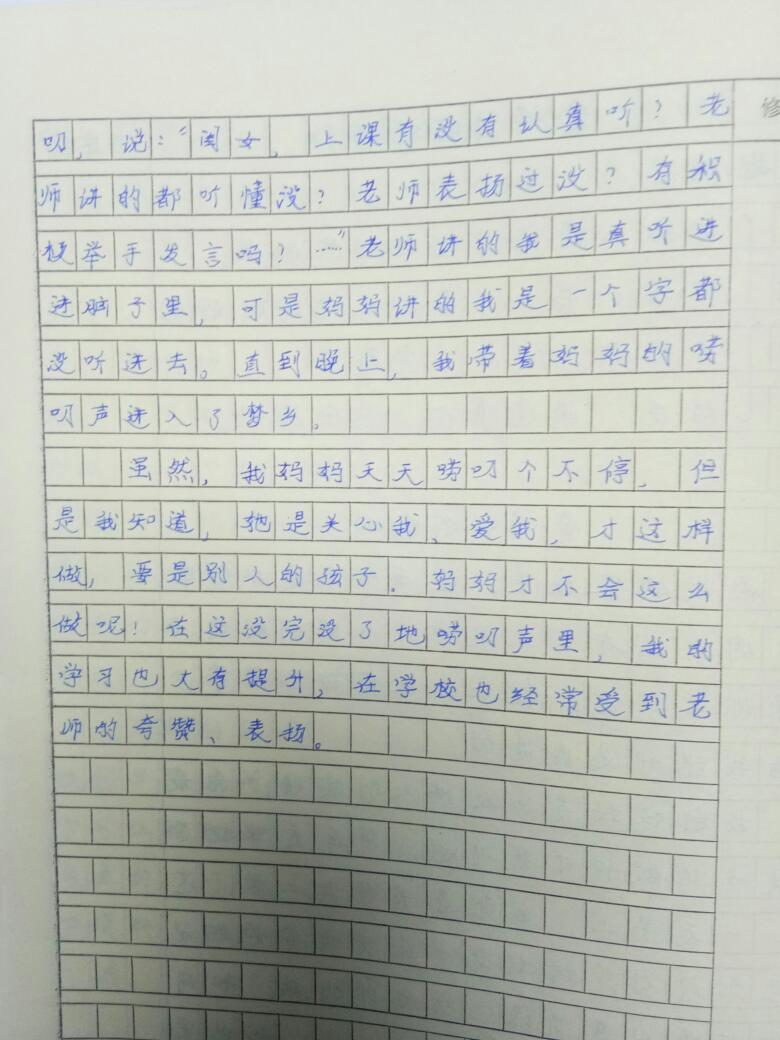 叨，说：“闺女，上课有没有认真听？老
师讲的都听懂没？老师表扬过没？有积
极举手发言吗？……”老师讲的我是真听进
进脑子里，可是妈妈讲的我是一个字都
没听进去。直到晚上，我带着妈妈的唠
叨声进入了梦乡。
虽然，我妈妈天天唠叨个不停，但
是我知道，她是关心我、爱我，才这样
做，要是别人的孩子．妈妈才不会这么
做呢！在这没完没了地唠叨声里，我的
学习也大有提升，在学校也经常受到老
师的夸赞、表扬。
修